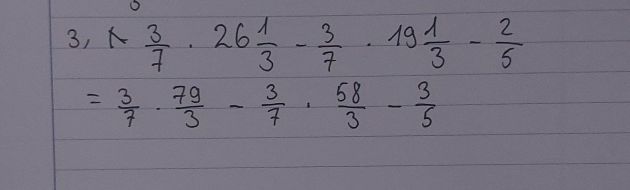 3, A 3/7 . 26 1/3 - 3/7 . 19 1/3 - 2/5
= 3/7 . 79/3 - 3/7 . 58/3 - 3/5